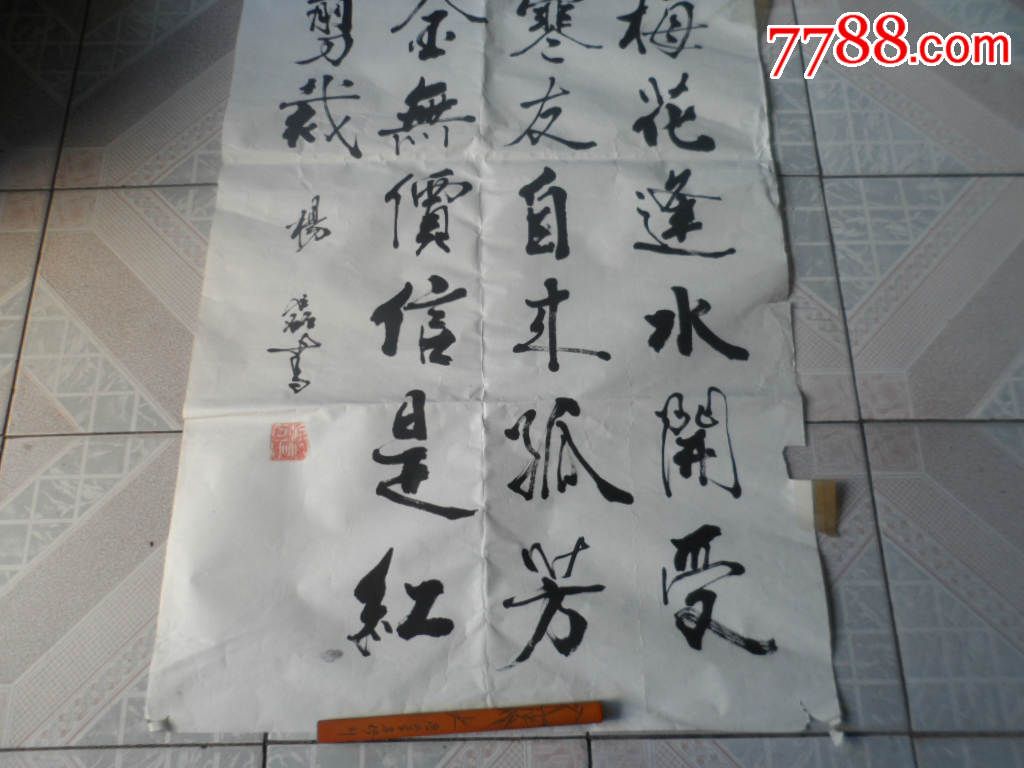 7788.com
梅花逢水開受
寒友自来孤芳
金無價信是紅
剪裁
楊磊書